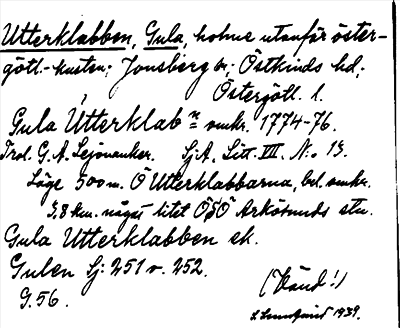 Utterklabben, Gula, holme utanför öster-
götl.-kusten; Jonsberg sn; Östkinds hd;
Östergötl. l.
Gula Utterklabn omkr. 1774-76.
Trol. G. A. Lejonanker. Sj.A. Litt. VII. No 13.
Läge 500 m. Ö Utterklabbarna, bel. omkr.
3,8 km. något litet ÖSÖ Arkösunds stn.
Gula Utterklabben ek.
Gulen Sj: 251 v. 252.
G. 56. (Vänd!)
1939.